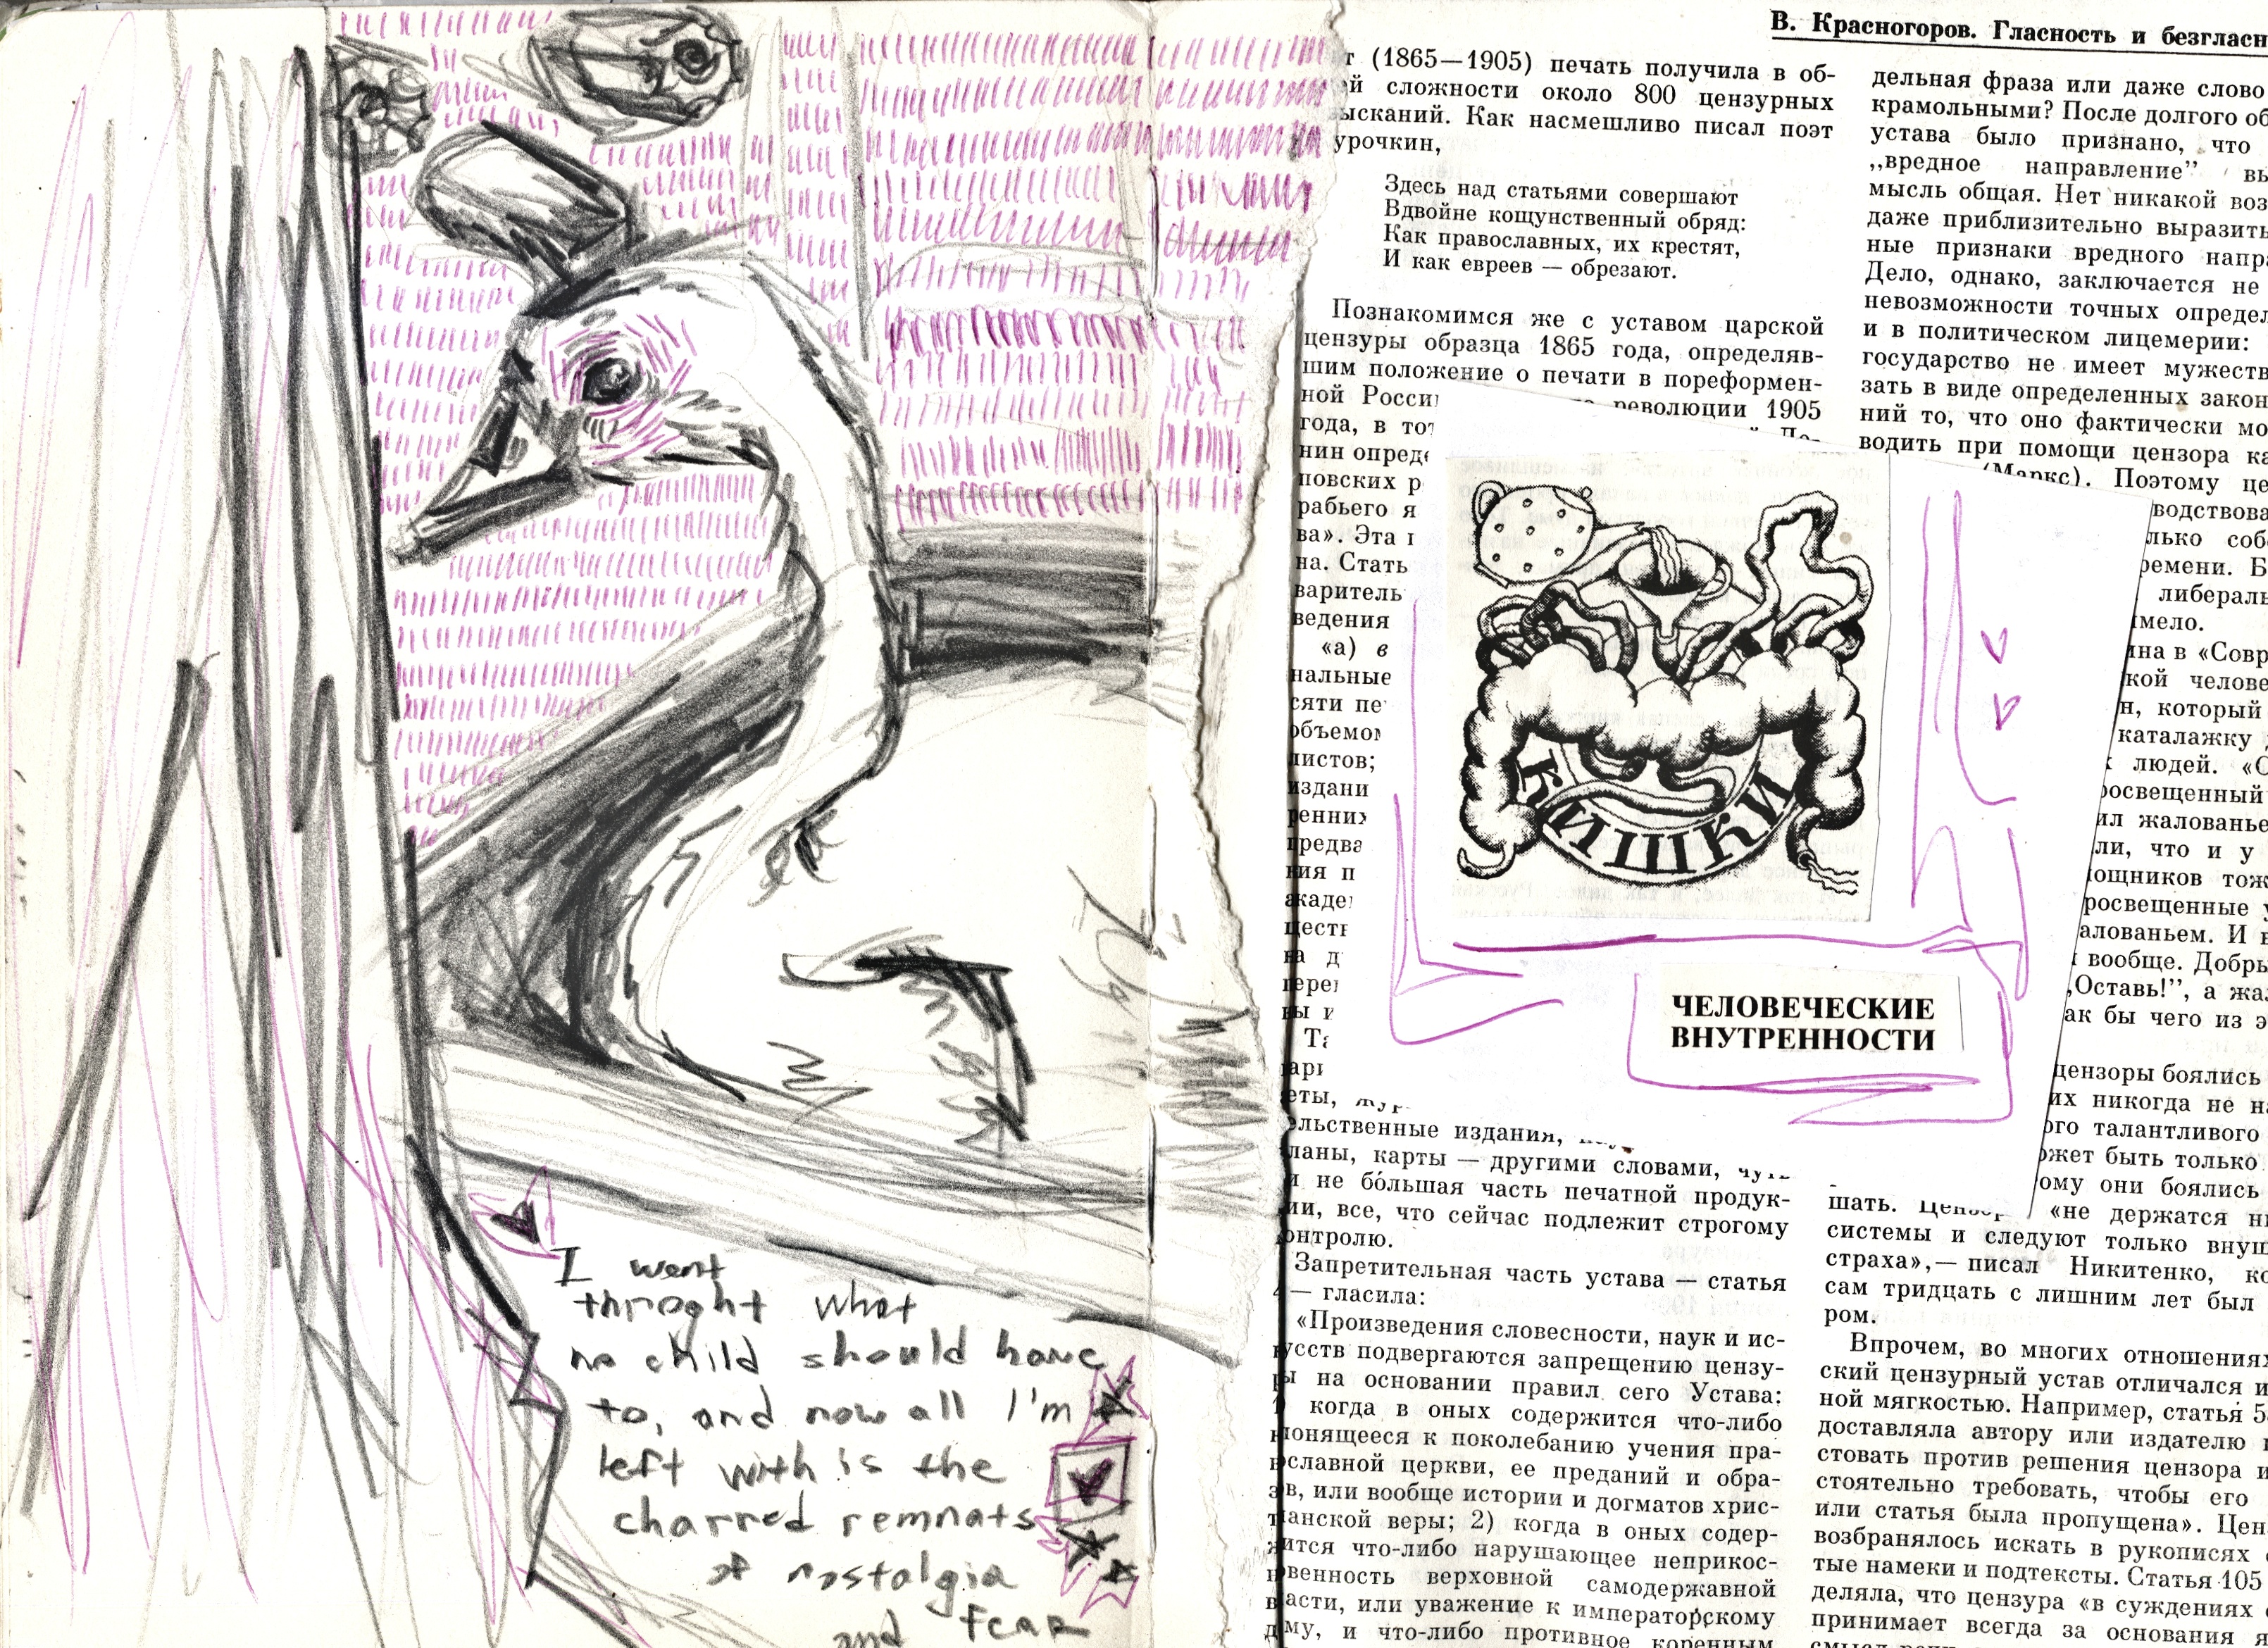 I went
throght what
no child should have
to, and now all I'm
left with is the
charred remnats
of nostalgia
and fear
В. Красногоров. Гласность и безгласн
т (1865—1905) печать получила в об-
й сложности около 800 цензурных
ысканий. Как насмешливо писал поэт
урочкин,
Здесь над статьями совершают
Вдвойне кощунственный обряд:
Как православных, их крестят,
И как евреев — обрезают.
Познакомимся же с уставом царской
цензуры образца 1865 года, определяв-
шим положение о печати в пореформен-
ной Росси
революции 1905
года, в то
нин опреде
повских р
рабьего я
ва». Эта
на. Стать
варитель
ведения
«а) в
нальные
сяти пе
объемом
листов;
издани
ренних
предва
ния п
акаде
щест
на д
пере
ны и
еты, жур
ельственные издания,
ланы, карты — другими словами, чуть
и не бо́льшая часть печатной продук-
ии, все, что сейчас подлежит строгому
онтролю.
Запретительная часть устава — статья
4 — гласила:
«Произведения словесности, наук и ис-
усств подвергаются запрещению цензу-
ры на основании правил сего Устава:
1) когда в оных содержится что-либо
клонящееся к поколебанию учения пра-
вославной церкви, ее преданий и обра-
зов, или вообще истории и догматов хрис-
тианской веры; 2) когда в оных содер-
жится что-либо нарушающее неприкос-
новенность верховной самодержавной
власти, или уважение к императорскому
дому, и что-либо противное коренным
КИШКИ
ЧЕЛОВЕЧЕСКИЕ
ВНУТРЕННОСТИ
дельная фраза или даже слово
крамольными? После долгого об
устава было признано, что
„вредное направление” вы
мысль общая. Нет никакой воз
даже приблизительно выразить
ные признаки вредного напра
Дело, однако, заключается не
невозможности точных определ
и в политическом лицемерии:
государство не имеет мужеств
зать в виде определенных закон
ний то, что оно фактически мо
водить при помощи цензора ка
(Маркс). Поэтому це
водствова
лько соб
ремени. Б
либераль
имело.
ина в «Совр
кой челове
н, который
каталажку
х людей. «С
росвещенный
ил жалованье
ли, что и у
ощников тож
росвещенные у
алованьем. И в
вообще. Добры
„Оставь!”, а жа
ак бы чего из э
цензоры боялись
их никогда не на
ого талантливого
ожет быть только
ому они боялись
шать. Цензор «не держатся ни
системы и следуют только внуш
страха»,— писал Никитенко, ко
сам тридцать с лишним лет был
ром.
Впрочем, во многих отношениях
ский цензурный устав отличался и
ной мягкостью. Например, статья 5
доставляла автору или издателю
стовать против решения цензора и
стоятельно требовать, чтобы его
или статья была пропущена». Цен
возбранялось искать в рукописях
тые намеки и подтексты. Статья 105
деляла, что цензура «в суждениях
принимает всегда за основания